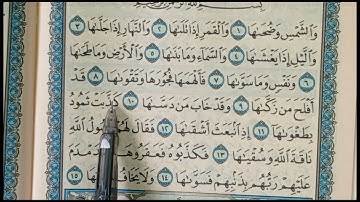 وَالشَّمْسِ وَضُحَىٰهَا ١ وَالْقَمَرِ إِذَا تَلَىٰهَا ٢ وَالنَّهَارِ إِذَا جَلَّىٰهَا ٣
وَالَّيْلِ إِذَا يَغْشَىٰهَا ٤ وَالسَّمَآءِ وَمَا بَنَىٰهَا ٥ وَالْأَرْضِ وَمَا طَحَىٰهَا
٦ وَنَفْسٍ وَمَا سَوَّىٰهَا ٧ فَأَلْهَمَهَا فُجُورَهَا وَتَقْوَىٰهَا ٨ قَدْ
أَفْلَحَ مَن زَكَّىٰهَا ٩ وَقَدْ خَابَ مَن دَسَّىٰهَا ١٠ كَذَّبَتْ ثَمُودُ
بِطَغْوَىٰهَا ١١ إِذِ انۢبَعَثَ أَشْقَىٰهَا ١٢ فَقَالَ لَهُمْ رَسُولُ اللَّهِ
نَاقَةَ اللَّهِ وَسُقْيَٰهَا ١٣ فَكَذَّبُوهُ فَعَقَرُوهَا فَدَمْدَمَ
عَلَيْهِمْ رَبُّهُم بِذَنۢبِهِمْ فَسَوَّىٰهَا ١٤ وَلَا يَخَافُ ١٥